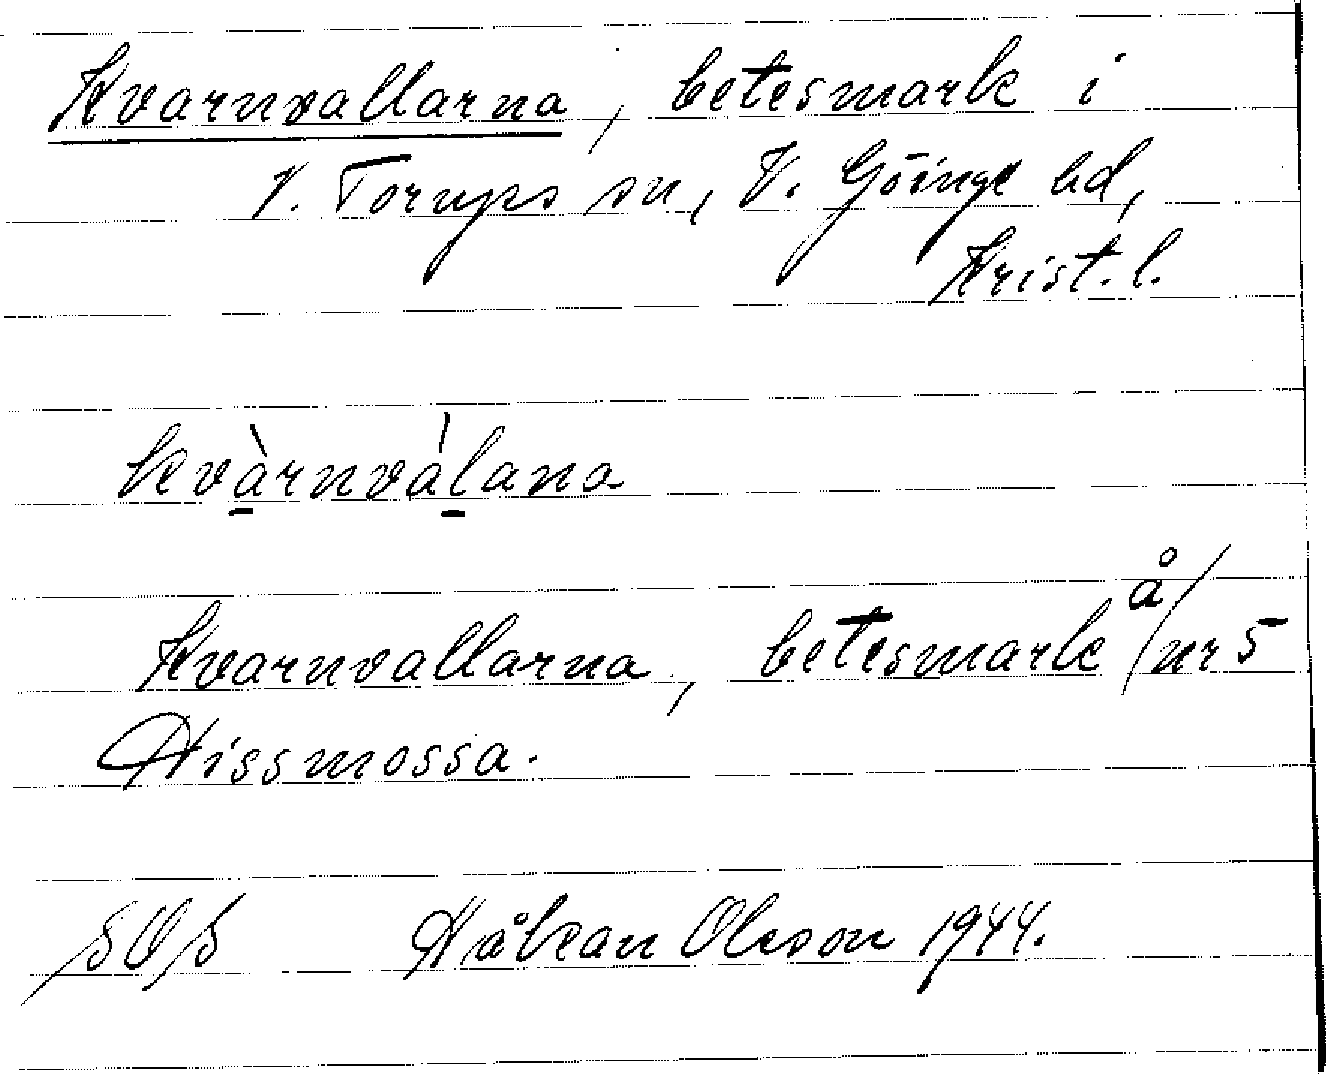 Kvarnvallarna, betesmark i
V. Torups sn, V. Göinge hd,
Krist. l.
kvàrnválana
Kvarnvallarna, betesmark å nr 5
Hissmossa.
SOS Håkan Olsson 1944.